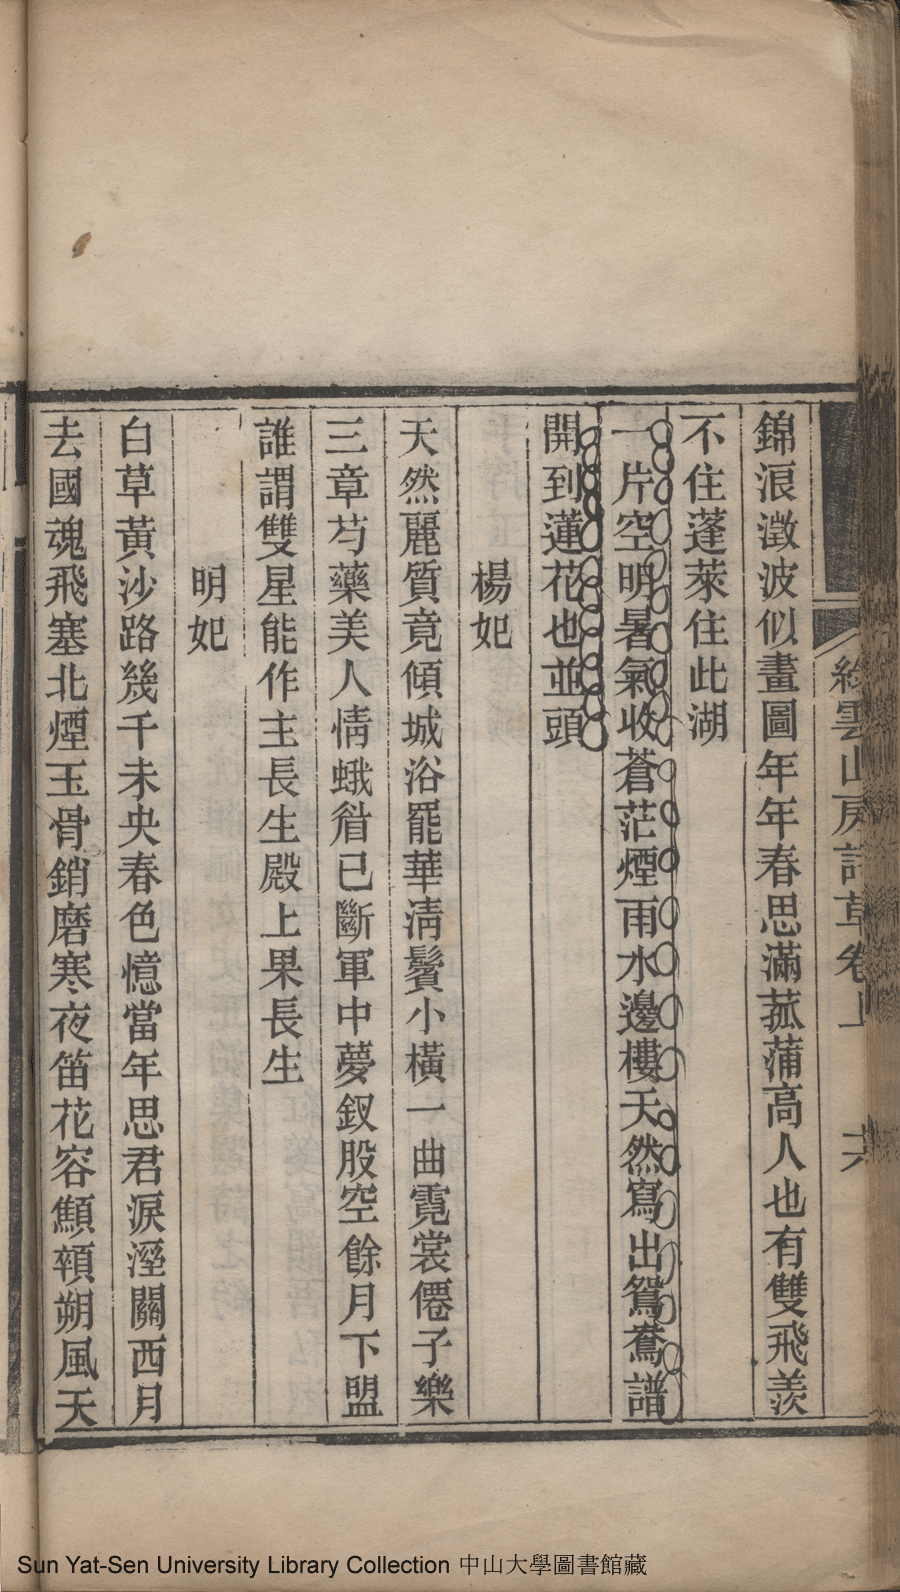 錦浪澂波似畫圖年年春思滿菰蒲高人也有雙飛羨
不住蓬萊住此湖
一片空明暑氣收蒼茫煙雨水邊樓天然寫出鴛鴦譜
開到蓮花也並頭
楊妃
天然麗質竟傾城浴罷華清鬢小橫一曲霓裳僊子樂
三章芍藥美人情蛾眉已斷軍中夢釵股空餘月下盟
誰謂雙星能作主長生殿上果長生
明妃
白草黃沙路幾千未央春色憶當年思君淚溼關西月
去國魂飛塞北煙玉骨銷磨寒夜笛花容顦顇朔風天
雲山房詩草卷上
六
Sun Yat-Sen University Library Collection 中山大學圖書館藏